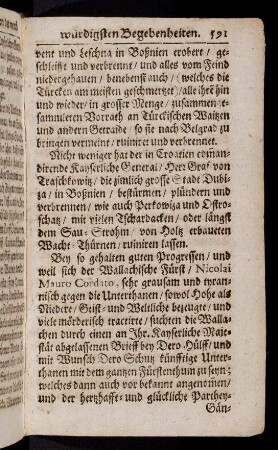 würdigsten Begebenheiten. 591
vent und Leschna in Boßnien erobert / ge-
schleifft und verbrennt / und alles vom Feind
niedergehauen / benebenst auch / (welches die
Türcken am meisten geschmertzet) alle ihre hin
und wieder / in grosser Menge / zusammen ge-
sammleten Vorrath an Türckischen Waitzen
und andern Getraide / so sie nach Belgrad zu
bringen vermeint / ruinirt und verbrennet.
Nicht weniger hat der in Croatien coman-
dirende Kayserliche General / Herr Graf von
Traschkowitz / die zimlich grosse Stadt Dubi-
tza / in Boßnien / bestürmen / plündern und
verbrennen / wie auch Perkowiza und Ostro-
schatz / mit vielen Tschardacken / oder längst
dem Sau-Strohm / von Holtz erbaueten
Wacht-Thürnen / ruiniren lassen.
Bey so gehalten guten Progressen / und
weil sich der Wallachische Fürst / Nicolai
Mauro Cordato, sehr grausam und tyran-
nisch gegen die Unterthanen / sowol Hohe als
Niedere / Geist- und Weltliche bezeugte / und
viele mörderisch tractirte / suchten die Walla-
chen durch einen an Ihr. Kayserliche Maje-
stät abgelassenen Brieff bey Dero Hülff / und
mit Wunsch Dero Schutz künfftige Unter-
thanen mit dem gantzen Fürstenthum zu seyn;
welches dann auch vor bekannt angenomen /
und der hertzhafft- und glückliche Parthey-
Gän-